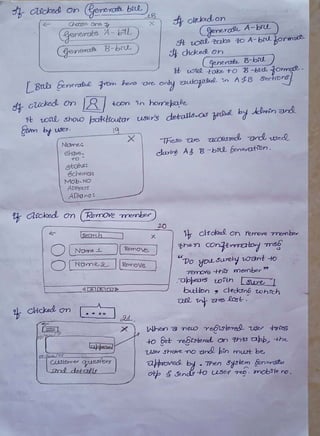 If clicked on (Generate bill)
18
← Choose one
Generate A-bill
Generate B-bill
If clicked on
(Generate A-bill)
It will take to A-bill format.
If clicked on
(Generate B-bill)
It will take to B-bill format.
[Bills generated from here are only autosaved in A & B sections]
If clicked on icon in homepage
it will show particular user's details as filled by Admin and
given by user.
19
X
Name:
Share.
no -
status
Schemes
Mob. no
Address
Aadhar:
These are accessed and used
during A & B-bill generation.
If clicked on (Remove member)
20
← Search X
Name 1 Remove
Name 2 Remove
If clicked on remove member
then confirmatory msg
"Do you surely want to
remove this member"
appears with [Sure]
button & clicking which
all inf are lost.
If clicked on [....]
21
X
approved
Customer questions
and details
When a new registered user tries
to get registered on this app, the
user share no and pin must be
approved by. Then system generate
otp & sends to user reg. mobile no.